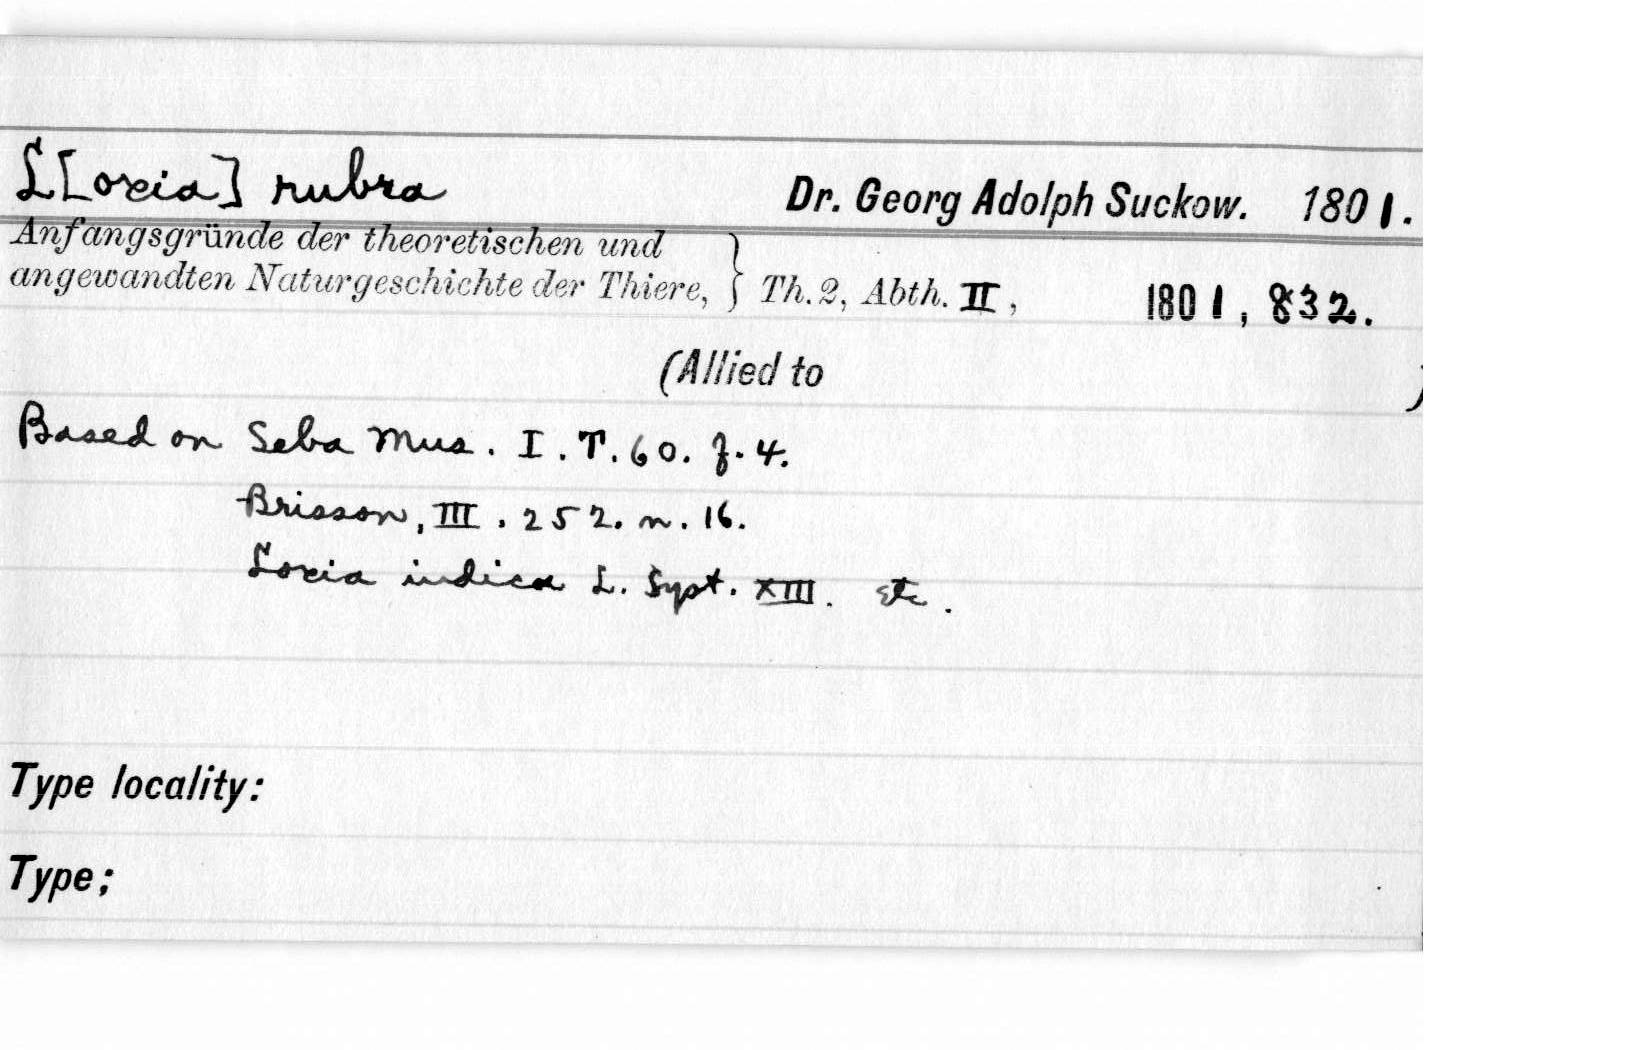 L[oxia] rubra Dr. Georg Adolph Suckow. 1801.
Anfangsgründe der theoretischen und
angewandten Naturgeschichte der Thiere, } Th. 2, Abth. II, 1801, 832.
(Allied to )
Based on Seba Mus. I. T. 60. f. 4.
Brisson, III. 252. n. 16.
Loxia indica L. Syst. XIII. etc.
Type locality:
Type;